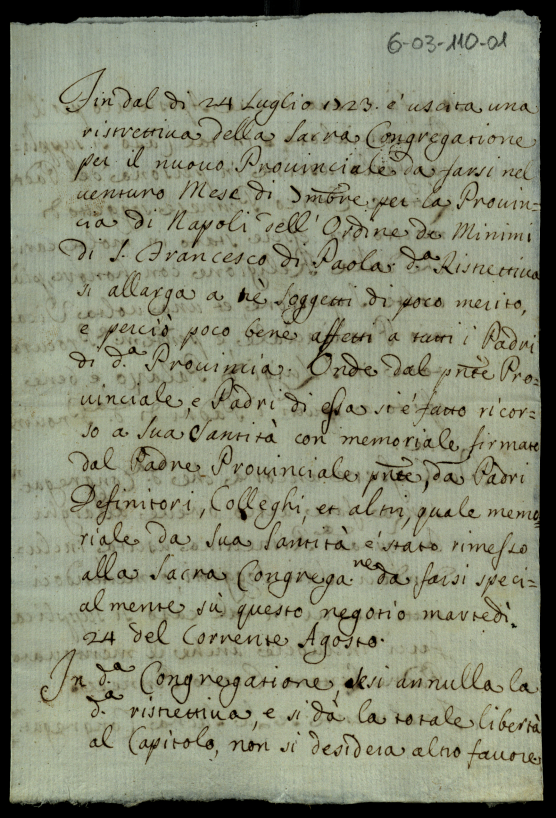 6-03-110-01
Fin dal di 24 Luglio 1723. é uscita una
ristrettiva della Sacra Congregatione
per il nuovo Provinciale da farsi nel
venturo Mese di 9mbre per la Provin-
cia di Napoli dell'Ordine de Minimi
di S. Francesco di Paola. d.a Ristrettiva
si allarga a trè Soggetti di poco merito,
e perciò poco bene affetti a tutti i Padri
di d.a Provincia. Onde dal pnte Pro-
vinciale, e Padri di essa si é fatto ricor-
so a Sua Santità con memoriale firmato
dal Padre Provinciale pnte, da Padri
Definitori, Colleghi, et altri, quale memo-
riale da Sua Santità é stato rimesso
alla Sacra Congrega.ne da farsi speci-
almente sù questo negotio martedì
24 del Corrente Agosto.
In d.a Congregatione si annulla la
d.a ristrettiva, e si dà la totale libertà
al Capitolo, non si desidera altro favore